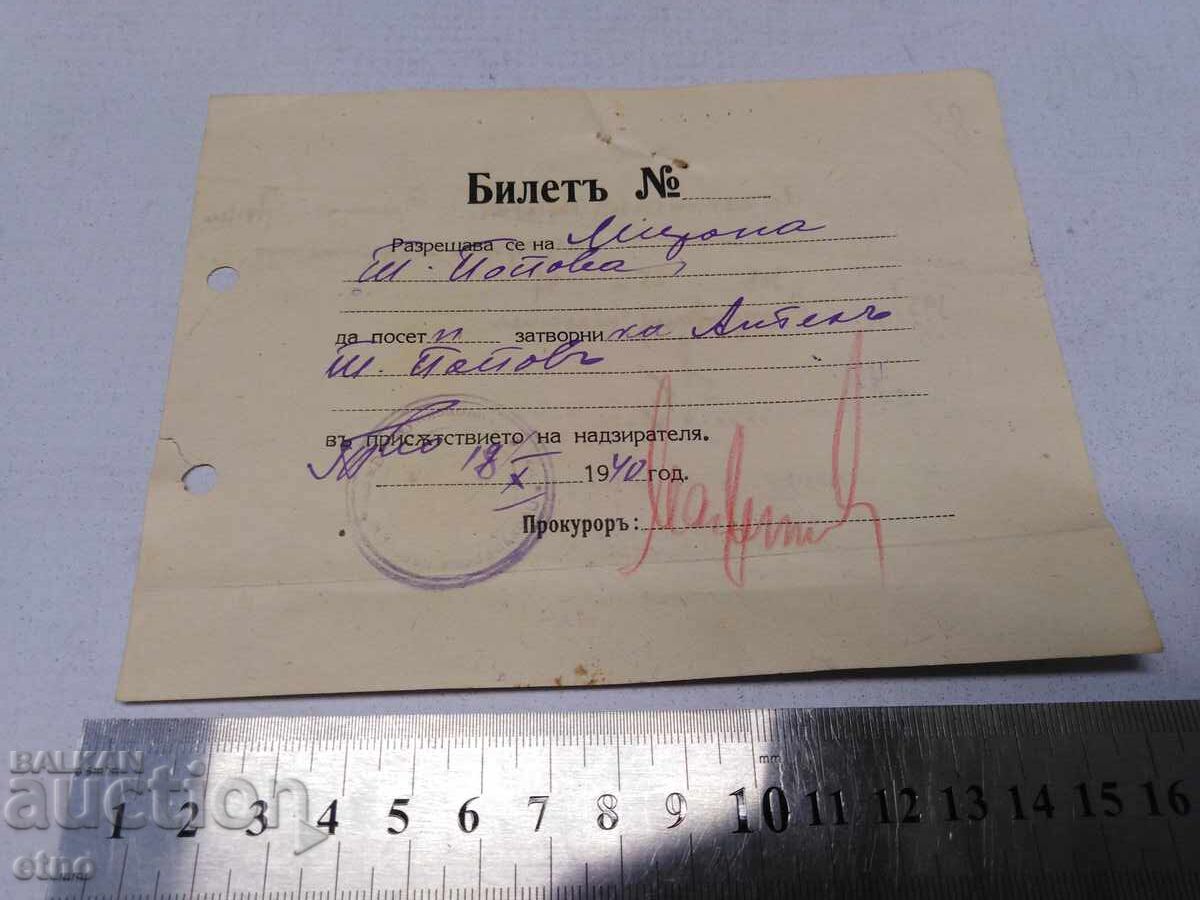 Билетъ №
Разрещава се на
Т. Попова
да посети затворника Антенъ
Т. Поповъ
въ присѫтствието на надзирателя.
18/X 1940 год.
Прокуроръ:
mm
1 2 3 4 5 6 7 8 9 10 11 12 13 14 15 16
BALKAN
auction
etno